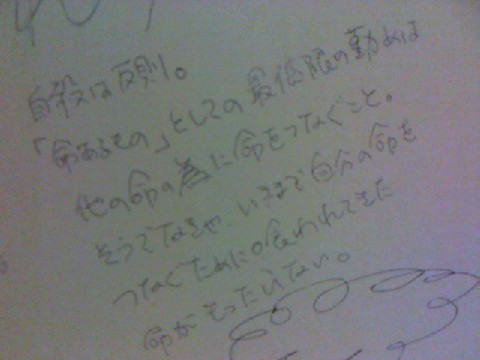 自殺は反則。
「命あるもの」としての最低限の勤めは
他の命の為に命をつなぐこと。
そうでなきゃ、いままで自分の命を
つなぐために喰われてきた
命がもったいない。